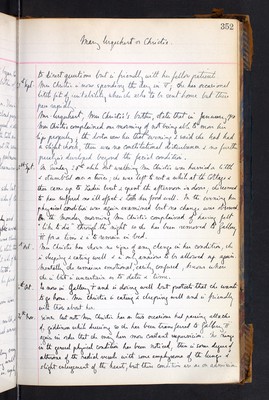 352
Mary Urquhart or Christie.
to direct questions but is friendly with her fellow patients
Mrs Christie is now spending the day in & has occasional
little fits of irritability when she asks to be sent home but these
pass rapidly.
Mr Urquhart, Mrs Christie's brother, states that in January
Mrs Christie complained one morning of not being able to move her
legs properly, the doctor saw her that evening & said she had had
a slight shock, there was no constitutional disturbance & no further
paralysis developed beyond the facial condition.
On Sunday when out walking Mrs Christie was hurried a little
& stumbled once or twice, she was left to rest a while at the Cottage &
then came up to & spent the afternoon in doors, she seemed
to have suffered no ill effect & took her food well. In the evening her
physical condition was again examined but no change was observed
On the Monday morning Mrs Christie complained of having felt
"like to die" through the night so she has been removed to Gallery
for a time & is to remain in bed.
Mrs Christie has shown no signs of any change in her condition, she
is sleeping & eating well & is only anxious to be allowed up again.
Mentally she remains emotional, easily confused, knows where
she is but is uncertain as to dates & time.
Is now in Gallery & is doing well but protests that she wants
to go home. Mrs Christie is eating & sleeping well and is friendly
with those about her.
Since last note Mrs Christie has on two occasions had passing attacks
of giddiness while dressing so she has been transferred to Gallery
again in order that she may have more constant supervision. No change
in the general physical condition has been noticed, there is some degree of
of the radial vessels with some emphysema of the lungs &
slight enlargement of the heart, but these conditions are as on admission